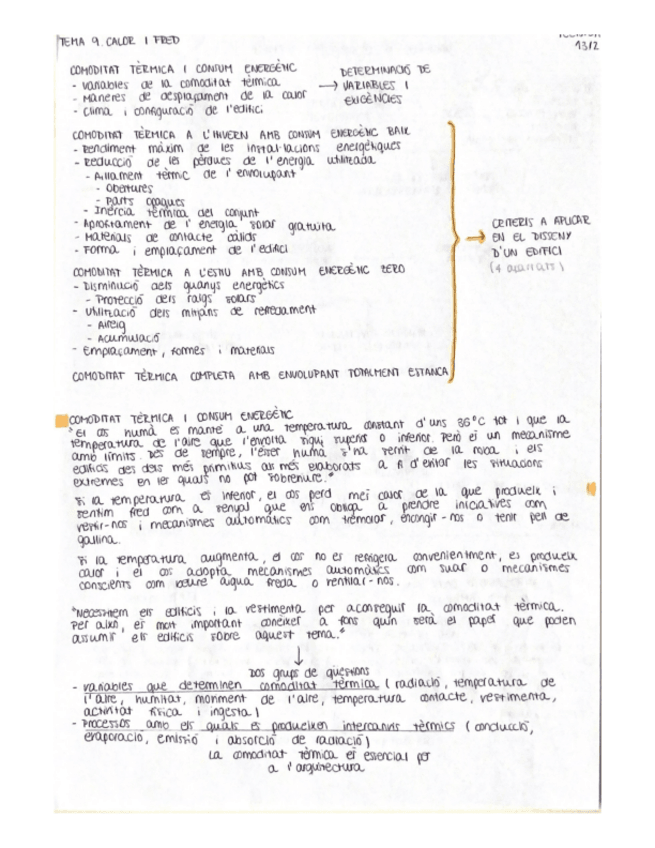 TEMA 9. CALOR I FRED
13/2
COMODITAT TÈRMICA I CONSUM ENERGÈTIC
- variables de la comoditat tèrmica
- Maneres de desplaçament de la calor
- Clima i configuració de l'edifici
→ DETERMINACIÓ DE
VARIABLES I
EXIGÈNCIES
COMODITAT TÈRMICA A L'HIVERN AMB CONSUM ENERGÈTIC BAIX
- Rendiment màxim de les instal·lacions energètiques
- Reducció de les pèrdues de l'energia utilitzada
- Aïllament tèrmic de l'envolupant
- Obertures
- Parts opaques
- Inèrcia tèrmica del conjunt
- Aprofitament de l'energia solar gratuïta
- Materials de contacte càlids
- Forma i emplaçament de l'edifici
COMODITAT TÈRMICA A L'ESTIU AMB CONSUM ENERGÈTIC ZERO
- Disminució dels guanys energètics
- Protecció dels raigs solars
- Utilització dels mitjans de refredament
- Aireig
- Acumulació
- Emplaçament, formes i materials
COMODITAT TÈRMICA COMPLETA AMB ENVOLUPANT TOTALMENT ESTANCA
→ CRITERIS A APLICAR
EN EL DISSENY
D'UN EDIFICI
(4 apartats)
COMODITAT TÈRMICA I CONSUM ENERGÈTIC
"El cos humà es manté a una temperatura constant d'uns 36°C tot i que la
temperatura de l'aire que l'envolta sigui superior o inferior. Però és un mecanisme
amb límits. Des de sempre, l'ésser humà s'ha servit de la roba i els
edificis des dels més primitius als més elaborats a fi d'evitar les situacions
extremes en les quals no pot sobreviure."
Si la temperatura és inferior, el cos perd més calor de la que produeix i
sentim fred com a senyal que ens obliga a prendre iniciatives com
vestir-nos i mecanismes automàtics com tremolar, encongir-nos o tenir pell de
gallina.
Si la temperatura augmenta, el cos no es refrigera convenientment, es produeix
calor i el cos adopta mecanismes automàtics com suar o mecanismes
conscients com beure aigua freda o ventilar-nos.
"Necessitem els edificis i la vestimenta per aconseguir la comoditat tèrmica.
Per això, és molt important conèixer a fons quin serà el paper que poden
assumir els edificis sobre aquest tema."
↓
Dos grups de qüestions
- variables que determinen comoditat tèrmica (radiació, temperatura de
l'aire, humitat, moviment de l'aire, temperatura contacte, vestimenta,
activitat física i ingesta)
- Processos amb els quals es produeixen intercanvis tèrmics (conducció,
evaporació, emissió i absorció de radiació)
La comoditat tèrmica és essencial per
a l'arquitectura